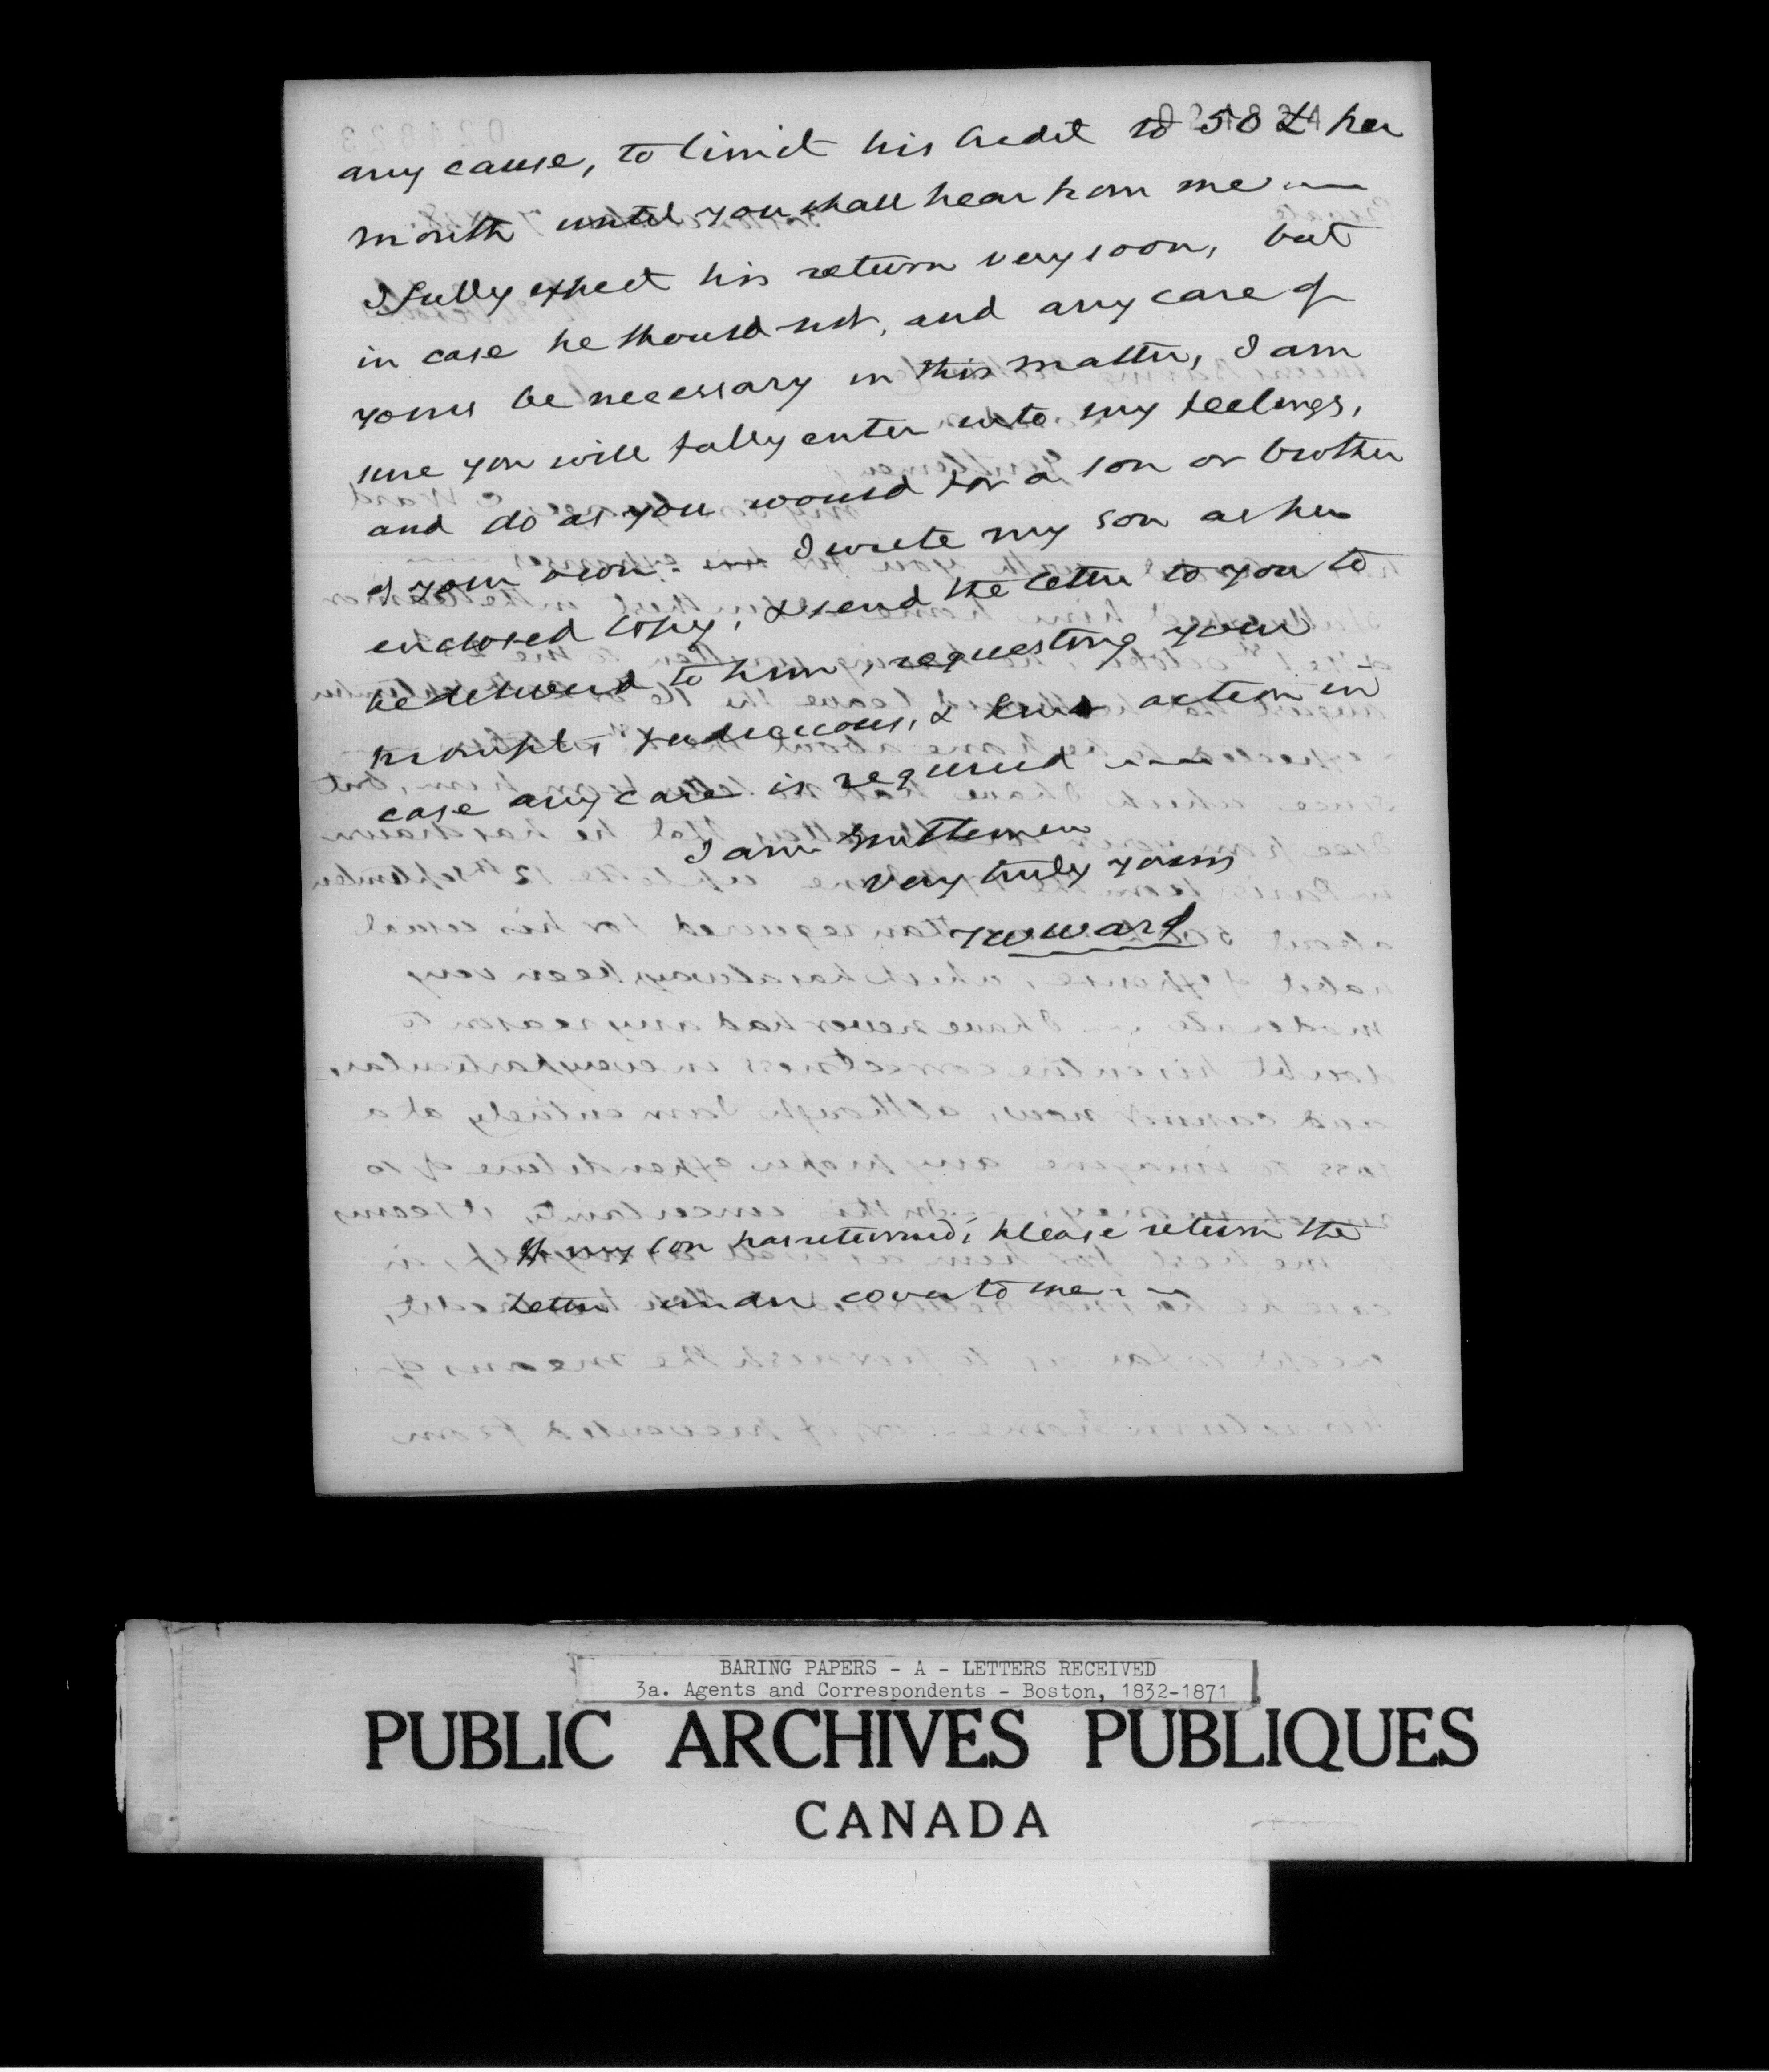 024824
any cause, to limit his credit to 50 £ per
month until you shall hear from me
I fully expect his return very soon, but
in case he should not, and any care of
yours be necessary in this matter, I am
sure you will fully enter into my feelings,
and do as you would for a son or brother
of your own. I wrote my son as per
enclosed copy, & send the letter to you to
be delivered to him, requesting your
prompt, judicious, & kind action in
case any care is required
I am Gentlemen
very truly yours
TWWard
If my son has returned, please return the
letter under cover to me.
BARING PAPERS - A - LETTERS RECEIVED
3a. Agents and Correspondents - Boston, 1832-1871
PUBLIC ARCHIVES PUBLIQUES
CANADA